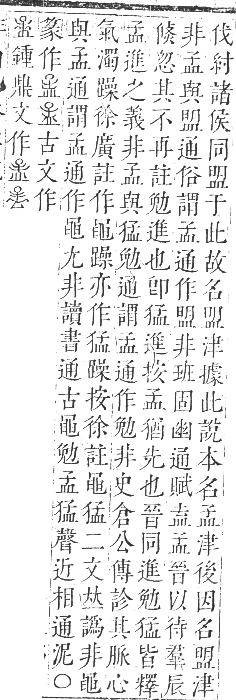 伐紂諸侯同盟于此故名盟津據此說本名孟津後因名盟津
非孟與盟通俗謂孟通作盟非班固幽通賦盍孟晉以待羣辰
倏忽其不再註勉進也卽猛進按孟猶先也晉同進勉猛皆釋
孟進之義非孟與猛勉通謂孟通作勉非史倉公傳診其脈心
氣濁躁徐廣註作黽躁亦作猛躁按徐註黽猛二文𠀤譌非黽
與孟通謂孟通作黽尤非讀書通古黽勉孟猛聲近相通泥〇
篆作古文作
鍾鼎文作